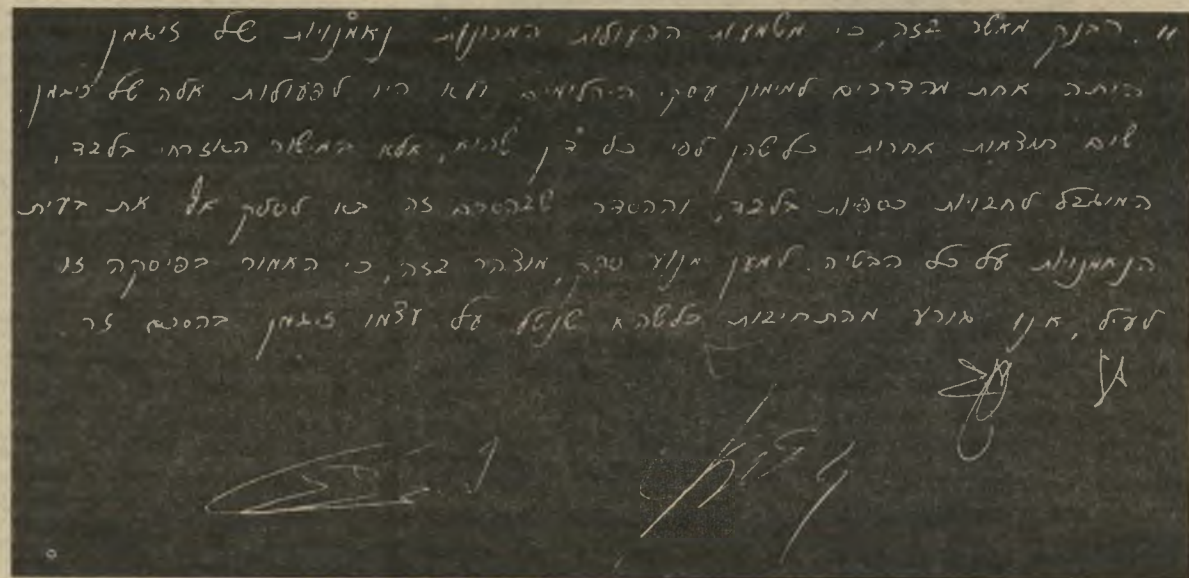 11. הבנק מאשר בזה, כי משמעות הפעולות המכונות נאמנויות של זיגמן
היתה אחת מהדרכים למימון עסקי היהלומים ולא היו לפעולות אלה של זיגמן
שום תוצאות אחרות כלשהן לפי כל דין שהוא, אלא במישור האזרחי בלבד,
המוגבל לחבויות כספיות בלבד, וההסדר שבהסכם זה בא לסלק את בעית
הנאמנויות על כל הבטיה. למען מנוע ספק, מוצהר בזה, כי האמור בפיסקה זו
לעיל, אינו גורע מהתחיבות כלשהיא שנטל על עצמו זיגמן בהסכם זה